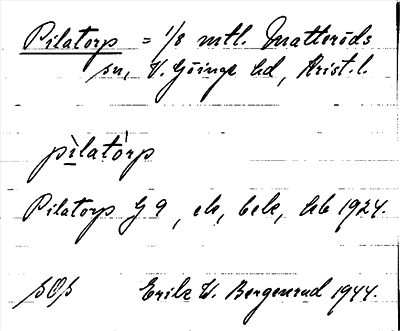 Pilatorp = 1/8 mtl. Matteröds
sn, V. Göinge hd, Krist. l.
pìlatòrp
Pilatorp G 9, ek, bek, hb 1924.
SOS Erik W. Bergenrud 1944.